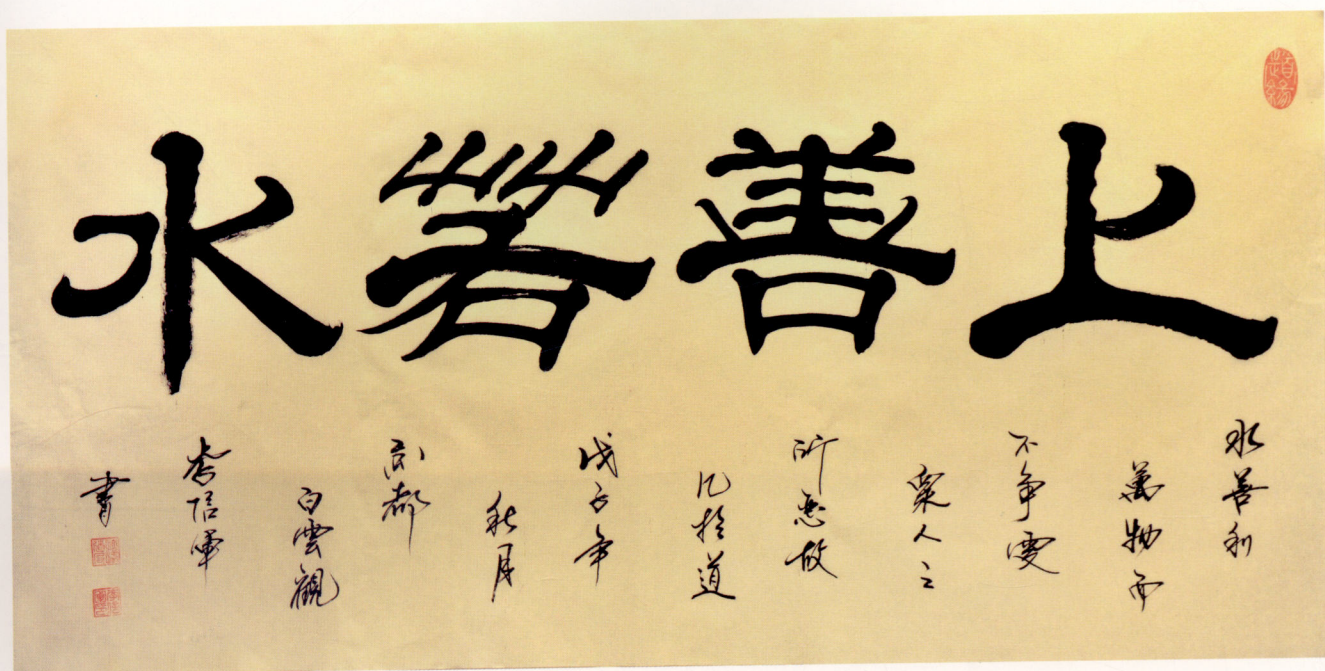 上善若水
水善利
萬物而
不争處
衆人之
所惡故
几於道
戊子年
秋月
京都
白雲觀
李信軍
書